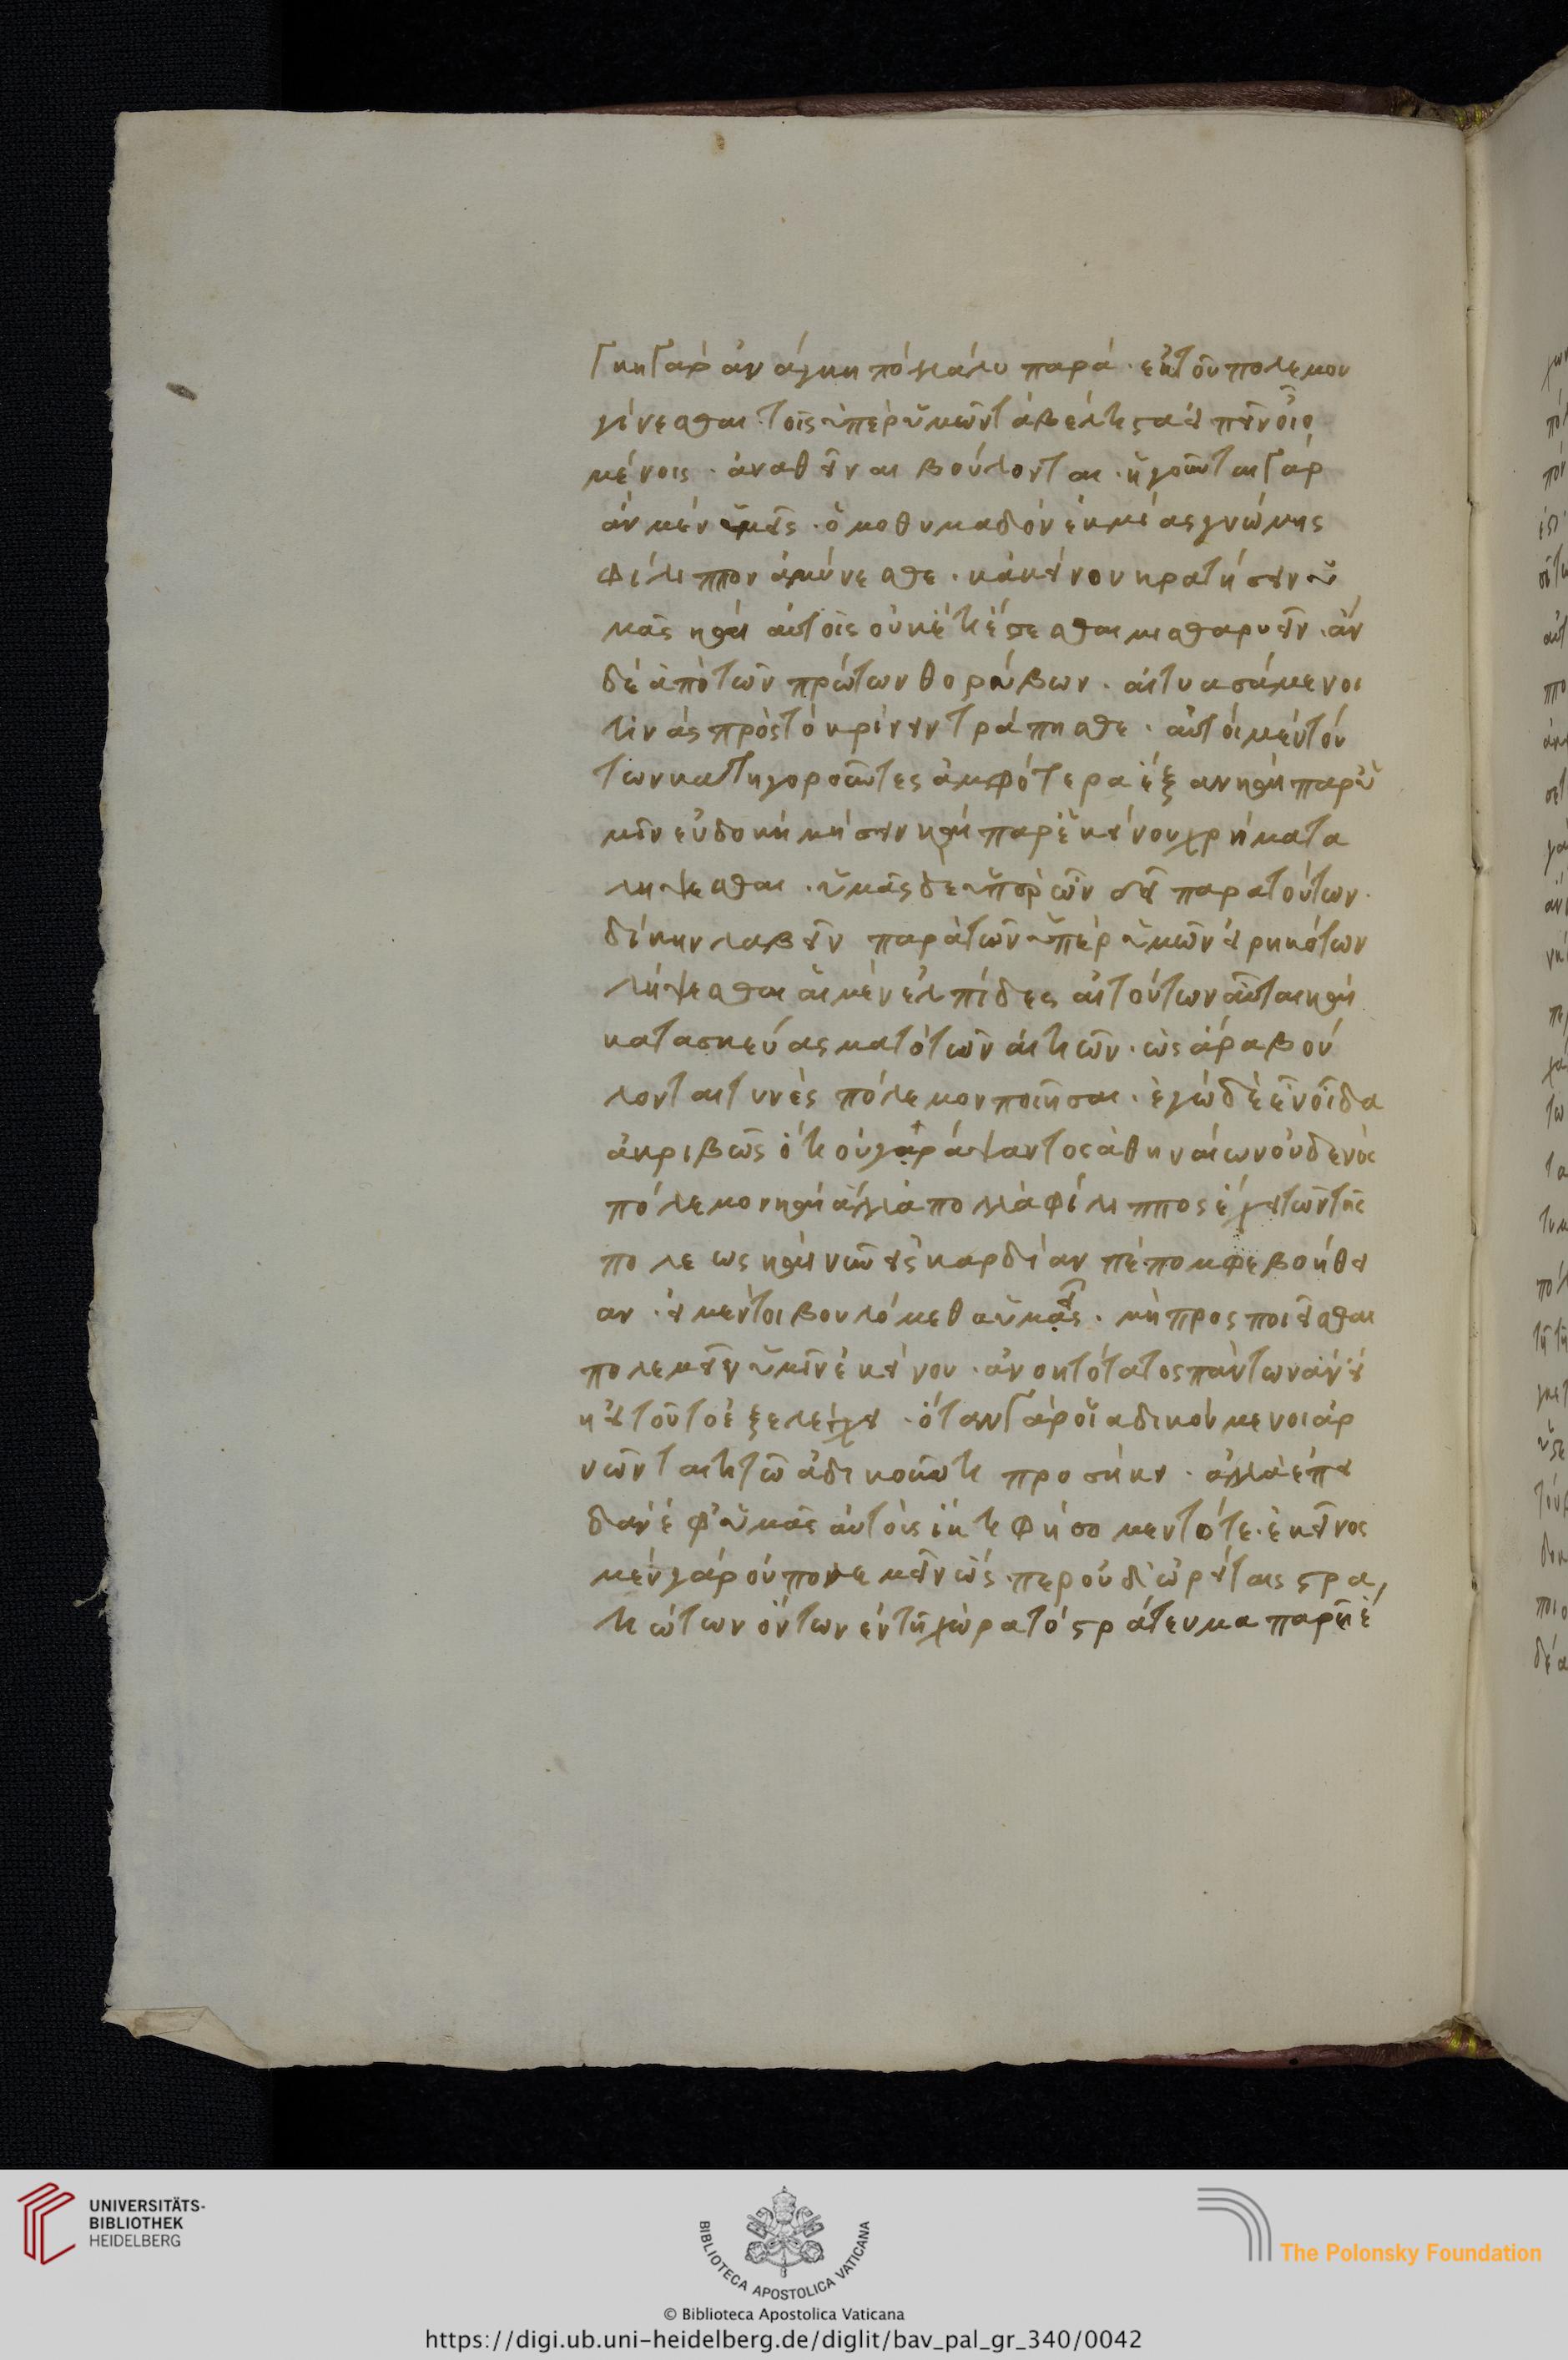 γκη γὰρ ἀνάγκη πόλλάλυ παρὰ· ἐκ τοῦ πολεμου
γίνεσθαι τοῖς ὑπὲρ ὑμῶν τὰ βέλτιστα εἰπεῖν οἰο
μένοις· ἀναθεῖναι βούλονται· ἡγοῦνται γὰρ
ἀν μὲν ὑμεῖς· ὁμοθυμαδὸν ἐκ μιᾶς γνώμης
Φίλιππον ἀμύνεσθε· κἀκείνου κρατήσειν ὑ
μᾶς καὶ αὐτοῖς οὐκέτι ἔσεσθαι μισθαρνεῖν· ἀν
δὲ ἀπὸ τῶν πρώτων θορύβων· αἰτιασάμενοι
τινὰς πρὸς τὸ κρίνειν τράπησθε· αὐτοὶ μὲν τού
των κατηγοροῦντες ἀμφότερα ἕξειν καὶ παρ' ὑ
μῖν εὐδοκιμήσειν καὶ παρ' ἐκείνου χρήματα
λήψεσθαι· ὑμᾶς δὲ ὑπὲρ ὧν δεῖ παρὰ τούτων·
δίκην λαβεῖν παρὰ τῶν ὑπὲρ ὑμῶν εἰρηκότων
λήψεσθαι αἱ μὲν ἐλπίδες αἱ τούτων αὗται καὶ
κατασκεύασμα τὸ τῶν αἰτιῶν· ὡς ἄρα βού
λονται τινὲς πόλεμον ποιῆσαι· ἐγὼ δὲ εὖ οἶδα
ἀκριβῶς ὅτι οὐ γράψαντος ἀθηναίων οὐδενὸς
πόλεμον καὶ ἄλλα πολλὰ φίλιππος ἔχει τῶν τῆς
πολεως καὶ νῦν εἰς καρδίαν πέπομφε βοήθει
αν· εἰ μέντοι βουλόμεθα ὑμεῖς· μὴ προσποιεῖσθαι
πολεμεῖν ὑμῖν ἐκείνον· ἀνοητότατος πάντων ἂν εἴ
η εἰ τοῦτο ἐξελέγχει· ὅταν γὰρ οἱ αδικούμενοι ἀρ
νῶνται τί τῶ ἀδικοῦντι προσήκει· ἀλλὰ ἐπει
δὰν ἐφ' ὑμᾶς αὐτοὺς ἴῃ τί φήσομεν τότε· ἐκεῖνος
μὲν γὰρ οὐ πολεμεῖν ὥσπερ οὐδὲ ὠρείταις στρα
τιώτων ὄντων ἐν τῇ χώρα τὸ στράτευμα παρῃὲ